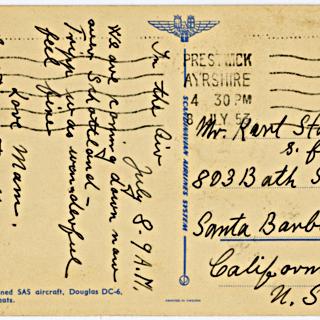 In the Air
July 8. 9 A.M.
We are coming down now
over Schottland –
Tripp was wonderful
feel fine
Love Mam.
PRESTWICK
AYRSHIRE
4 30 PM
8 JLY 53
SCANDINAVIAN AIRLINES SYSTEM
Mr. Kurt St
803 Bath S
Santa Barb
Californ
U. S
ned SAS aircraft, Douglas DC-6,
eats.
PRINTED IN SWEDEN